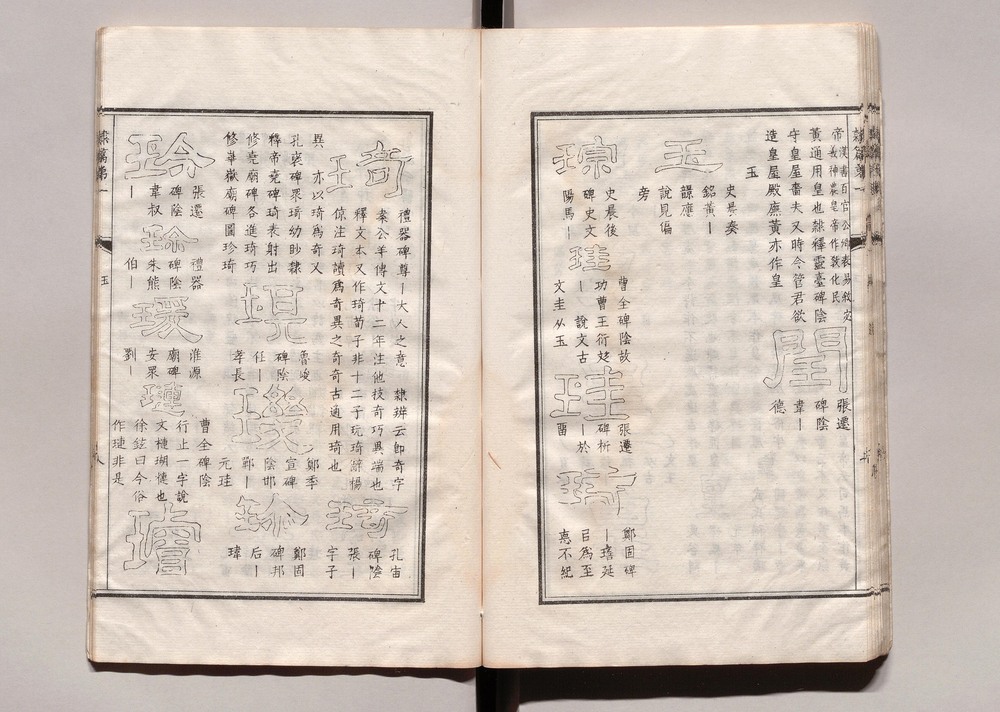 帝漢書百官公卿表易敘宓
羲神農皇帝作敎化民
黃通用皇也隸釋靈臺碑陰
守皇屋嗇夫又時令管君欲
造皇屋殿廡黃亦作皇
閏
張遷
碑陰
韋丨
德
玉
玉
史晨奏
銘黃丨
韻應
說見偏
旁
琮
史晨後
碑史文
陽馬丨
珪
曹全碑陰故
功曹王衍文
丨說文古
文圭从玉
珪
張遷
碑析
丨於
留
珩
鄭固碑
丨璜延
目爲至
悳不紀
琦
禮器碑尊丨大人之意
隸辨云卽奇字
案公羊傳文十二年注他技奇巧異端也
釋文本又作琦荀子非十二子玩琦辭楊
倞注琦讀爲奇異之奇奇古通用琦也
琦
孔宙
碑陰
張丨
字子
異
亦以琦爲奇又
孔襃碑眾琦幼眇隸
釋帝堯碑琦表射出
修堯廟碑各進琦巧
修崋嶽廟碑圖珍琦
琨
魯峻
碑陰
任丨
孝長
璣
鄭季
宣碑
陰邯
鄲丨
元珪
瑜
鄭固
碑邦
后丨
瑋
玲
張遷
碑陰
韋叔
丨
玲
禮器
碑陰
朱熊
伯丨
環
淮源
廟碑
安眾
劉丨
璉
曹全碑陰
行止一字說
文槤瑚槤也
徐鉉曰今俗
作璉非是
璿
隸篇第一
玉